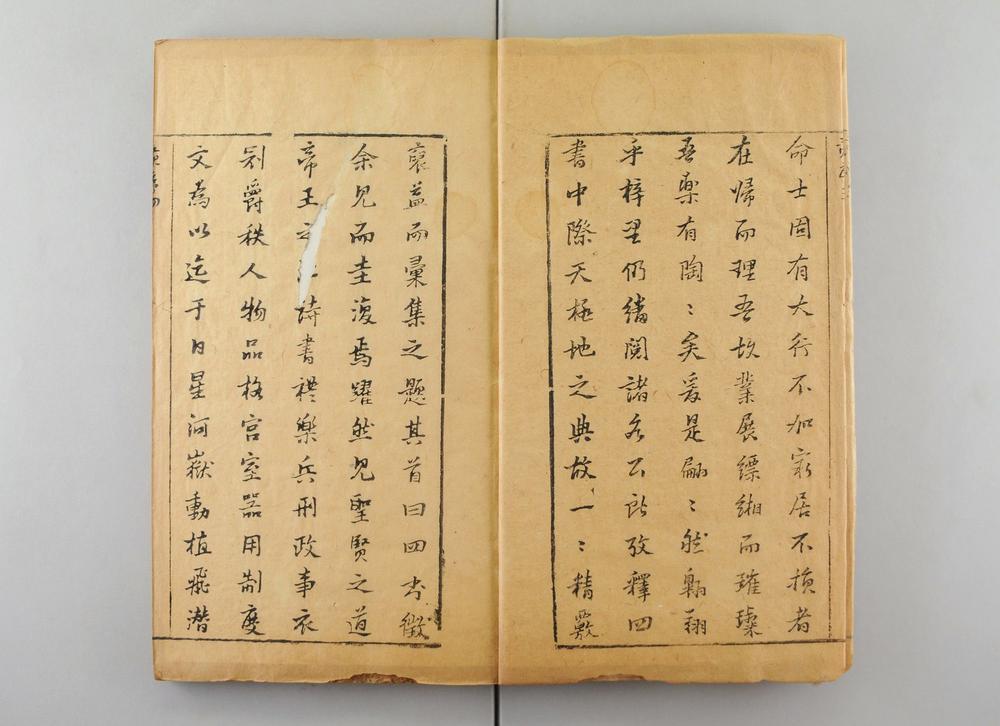 命士固有大行不加窮居不損者
在歸而理吾故業展縹緗而璀璨
吾樂有陶〻矣爰是翩〻然翱翔
乎梓里仍繙閱諸名公所攷釋四
書中際天極地之典故一〻精覈
裒益而彙集之題其首曰四書徵
余見而圭復焉躍然見聖賢之道
帝王之 詩書禮樂兵刑政事衣
爵秩人物品格宮室器用制度
文為以迄于日星河嶽動植飛潛